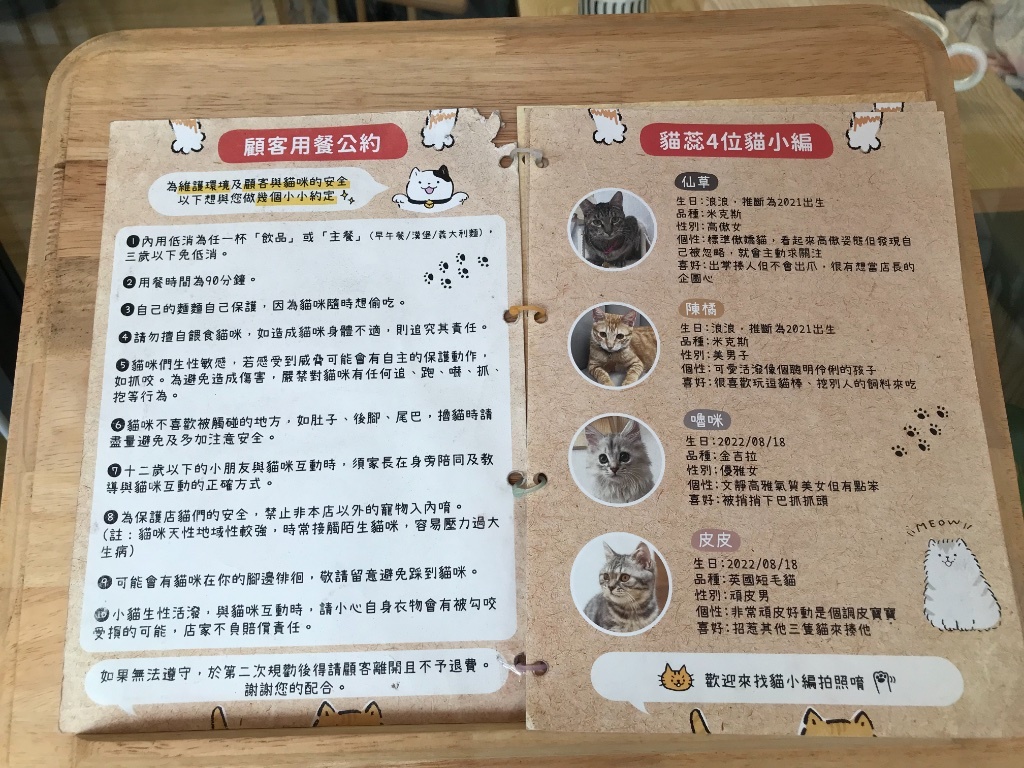 顧客用餐公約
為維護環境及顧客與貓咪的安全
以下想與您做幾個小小約定
❶內用低消為任一杯「飲品」或「主餐」(早午餐/漢堡/義大利麵),
三歲以下免低消。
❷用餐時間為90分鐘。
❸自己的麵麵自己保護,因為貓咪隨時想偷吃。
❹請勿擅自餵食貓咪,如造成貓咪身體不適,則追究其責任。
❺貓咪們生性敏感,若感受到威脅可能會有自主的保護動作,
如抓咬。為避免造成傷害,嚴禁對貓咪有任何追、跑、嚇、抓、
抱等行為。
❻貓咪不喜歡被觸碰的地方,如肚子、後腳、尾巴,擼貓時請
盡量避免及多加注意安全。
❼十二歲以下的小朋友與貓咪互動時,須家長在身旁陪同及教
導與貓咪互動的正確方式。
❽為保護店貓們的安全,禁止非本店以外的寵物入內唷。
(註:貓咪天性地域性較強,時常接觸陌生貓咪,容易壓力過大
生病)
❾可能會有貓咪在你的腳邊徘徊,敬請留意避免踩到貓咪。
❿小貓生性活潑,與貓咪互動時,請小心自身衣物會有被勾咬
受損的可能,店家不負賠償責任。
如果無法遵守,於第二次規勸後得請顧客離開且不予退費。
謝謝您的配合。
貓蕊4位貓小編
仙草
生日:浪浪,推斷為2021出生
品種:米克斯
性別:高傲女
個性:標準傲嬌貓,看起來高傲姿態但發現自
己被忽略,就會主動求關注
喜好:出掌揍人但不會出爪,很有想當店長的
企圖心
陳橘
生日:浪浪,推斷為2021出生
品種:米克斯
性別:美男子
個性:可愛活潑像個聰明伶俐的孩子
喜好:很喜歡玩逗貓棒、挖別人的飼料來吃
嚕咪
生日:2022/08/18
品種:金吉拉
性別:優雅女
個性:文靜高雅氣質美女但有點笨
喜好:被捎捎下巴抓抓頭
皮皮
生日:2022/08/18
品種:英國短毛貓
性別:頑皮男
個性:非常頑皮好動是個調皮寶寶
喜好:招惹其他三隻貓來揍他
MEOW
歡迎來找貓小編拍照唷